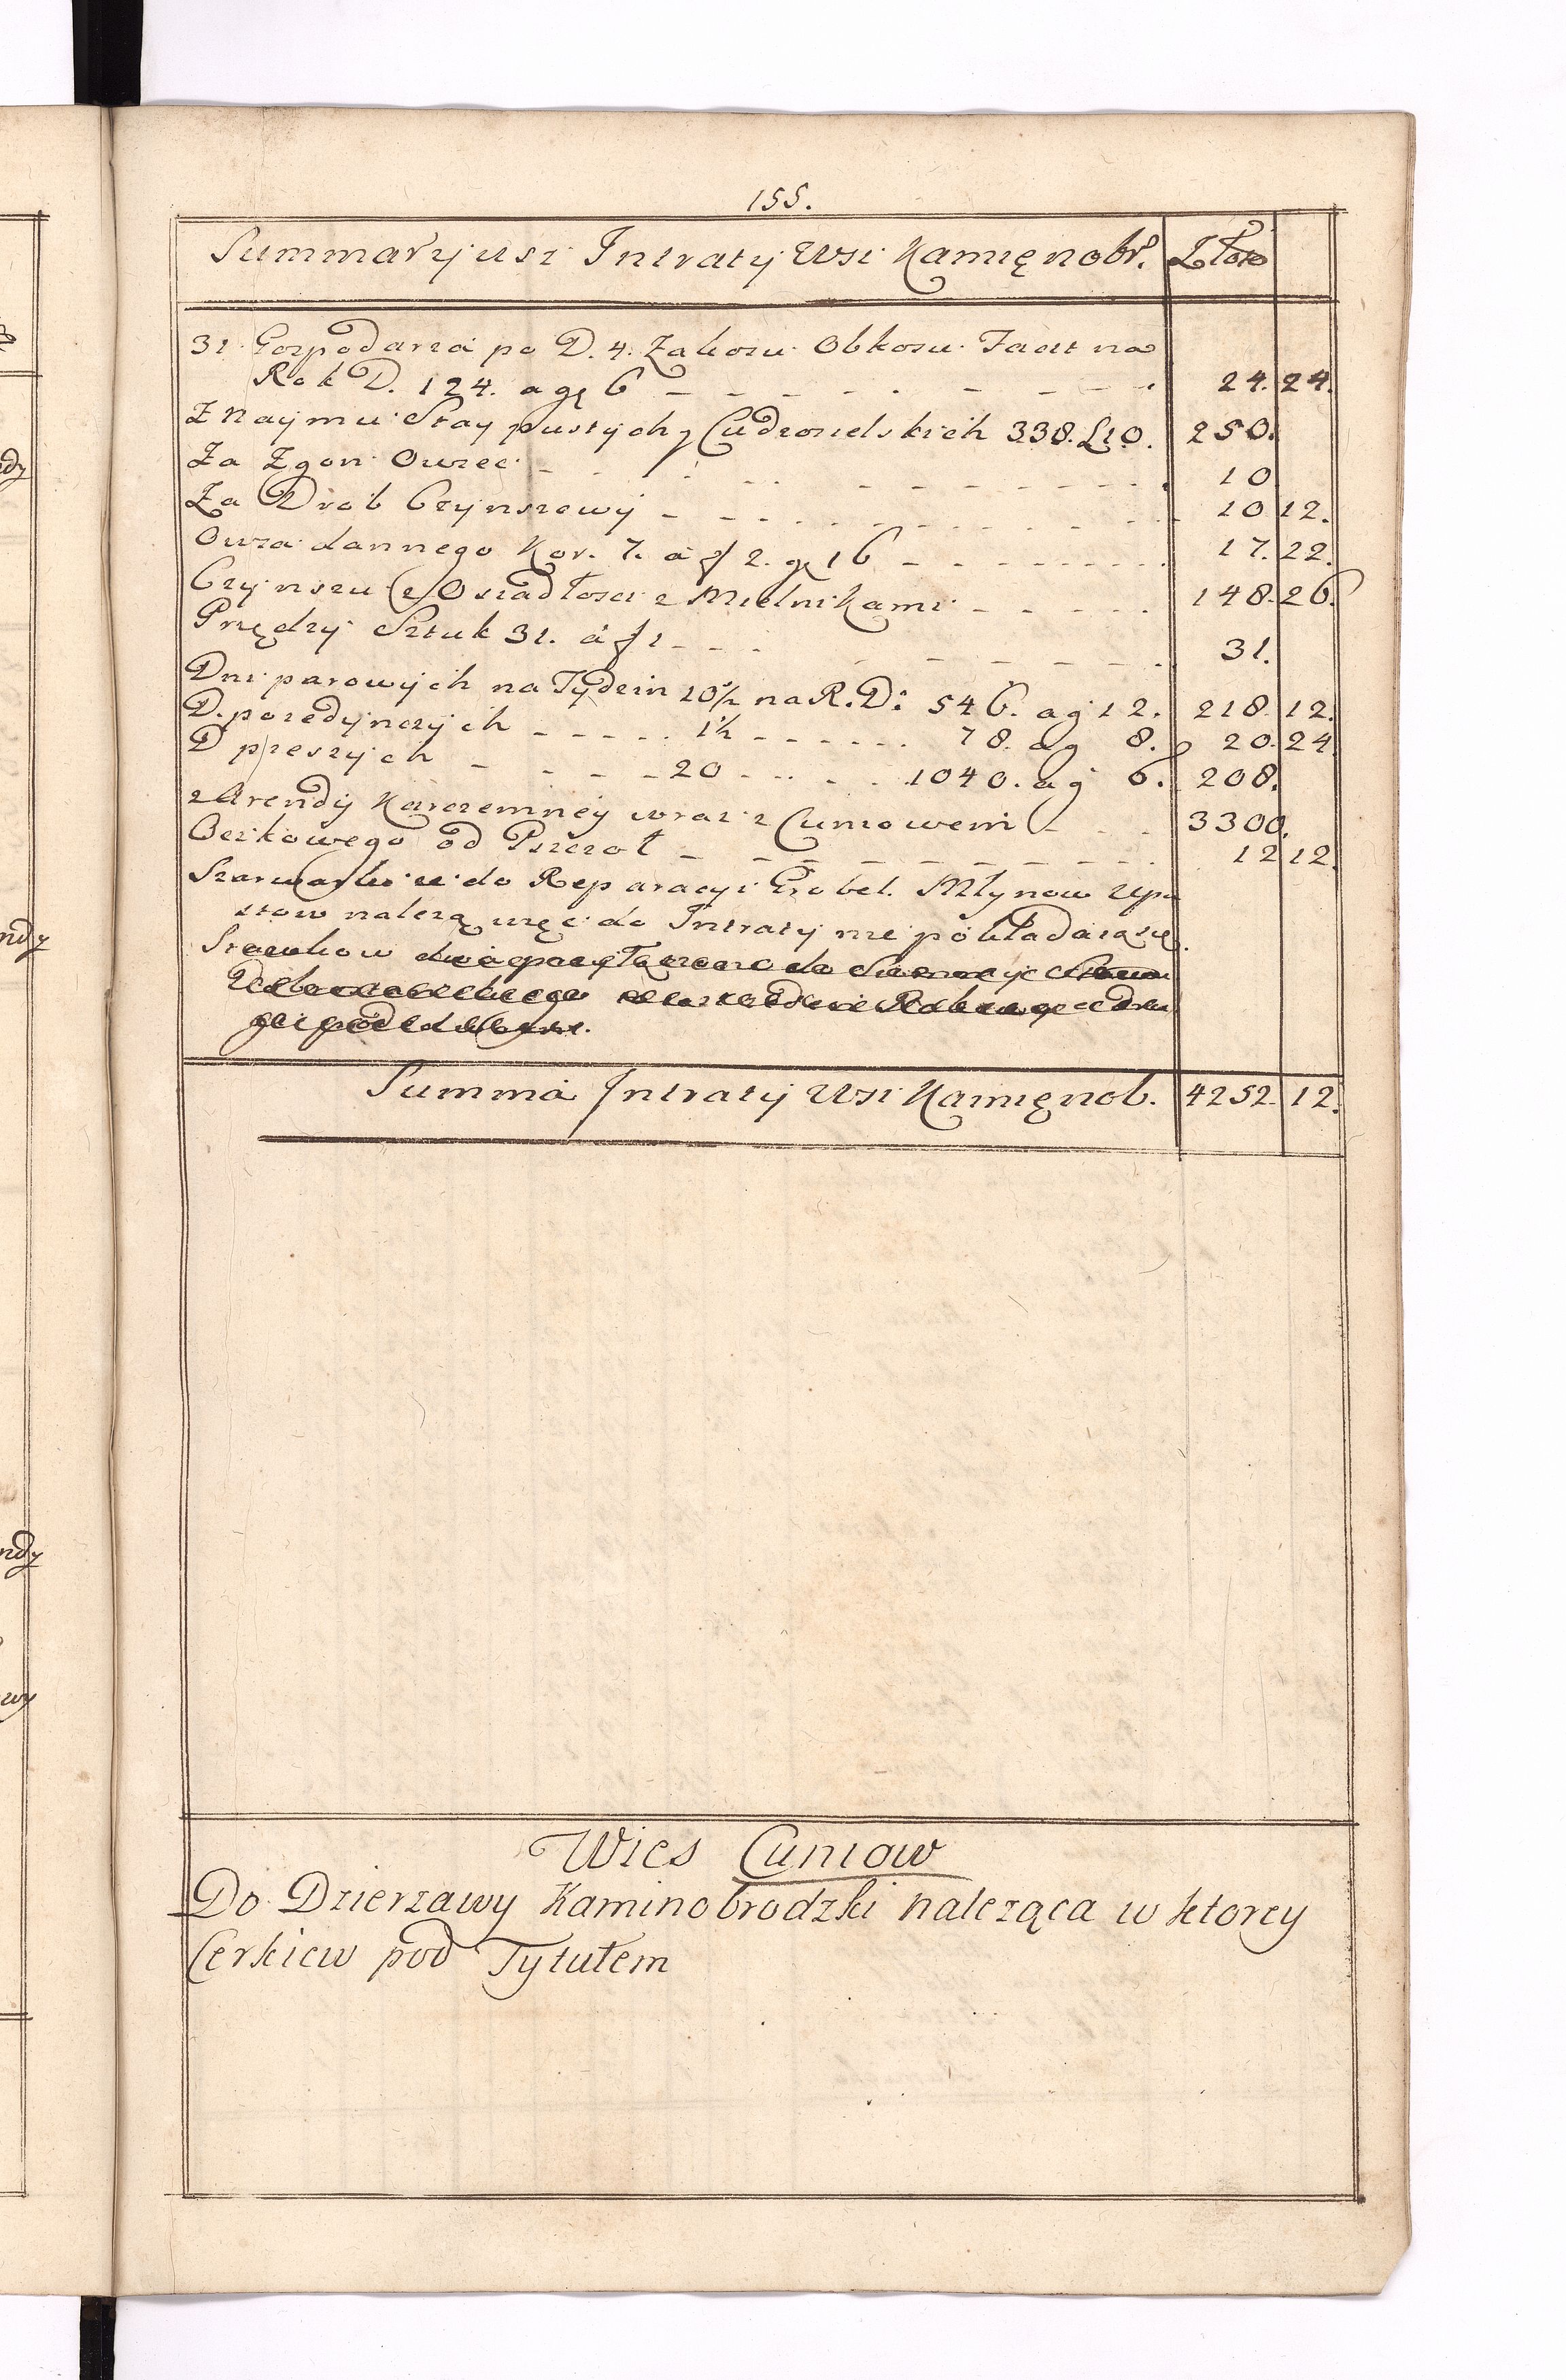 155.
Summaryusz Intraty Wsi Kamięnobr. Złote
31 Gospodarza po D. 4. Zakosu Obkosu na
Rok D. 124. a gę 6 24. 24.
Z Naymu Stay pustych y Cudzosielskich 338. 250.
Za Zgon Owiec 10
Za Drob Czynszowy 10 12.
Owsa dannego Kor. 7. á f 2. gę 16 17. 22.
Czynszu z Osiadłosci z Mielnikami 148. 26.
Przędzy Sztuk 31. á f 1 31.
Dni parowych na Tydzin 10½ na R. D: 546. a g 12. 218. 12.
D. poiedynczych 1½ 78. a g 8. 20. 24
D pieszych 20 1040. a g 6. 208.
z Arendy Karczemney wraz z Cuniowem 3300.
Oczkowego od Pszczoł 12 12.
do Reparacyi Grobel. Młynow Upu
stow nalezą więc do Intraty nie pokładaią się.
Summa Intraty Wsi Kamięnob. 4252. 12.
Wies Cuniow
Do Dzierzawy Kaminobrodzki naleząca w ktorey
Cerkiew pod Tytułem